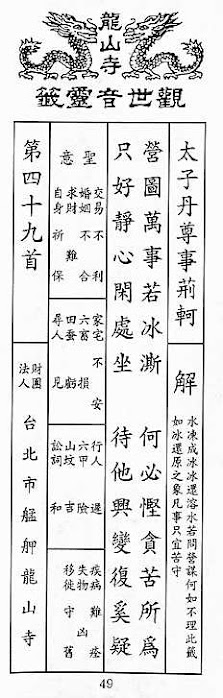 龍山寺
觀世音靈籤
太子丹尊事荊軻
解
水凍成冰冰還溶水若問營謀何如不理此籤
如冰還原之象凡事只宜苦守
營圖萬事若冰澌　何必慳貪苦所為
只好靜心閑處坐　待他興變復奚疑
聖意
交易不利
婚姻不合
求財難
自身祈保
家宅不安
六富損
田蚕虧
尋人見
行人遲
六甲險
山墳吉
訟詞和
疾病難痊
失物凶
移徙守舊
第四十九首
財團法人
台北市艋舺龍山寺
49